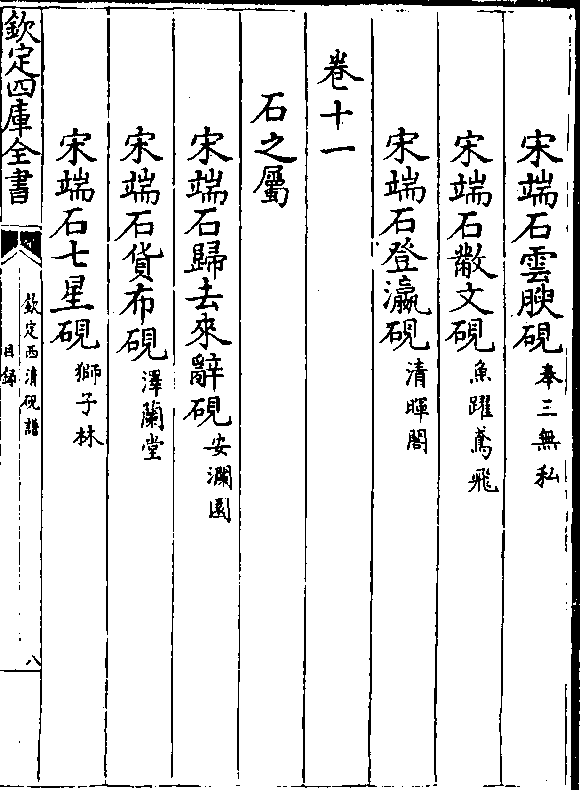 宋端石雲腴硯 奉三無私
宋端石黻文硯 魚躍鳶飛
宋端石登瀛硯 清暉閣
卷十一
石之屬
宋端石歸去來辭硯 安瀾園
宋端石貨布硯 澤蘭堂
宋端石七星硯 獅子林
欽定四庫全書
欽定西清硯譜
目錄
八